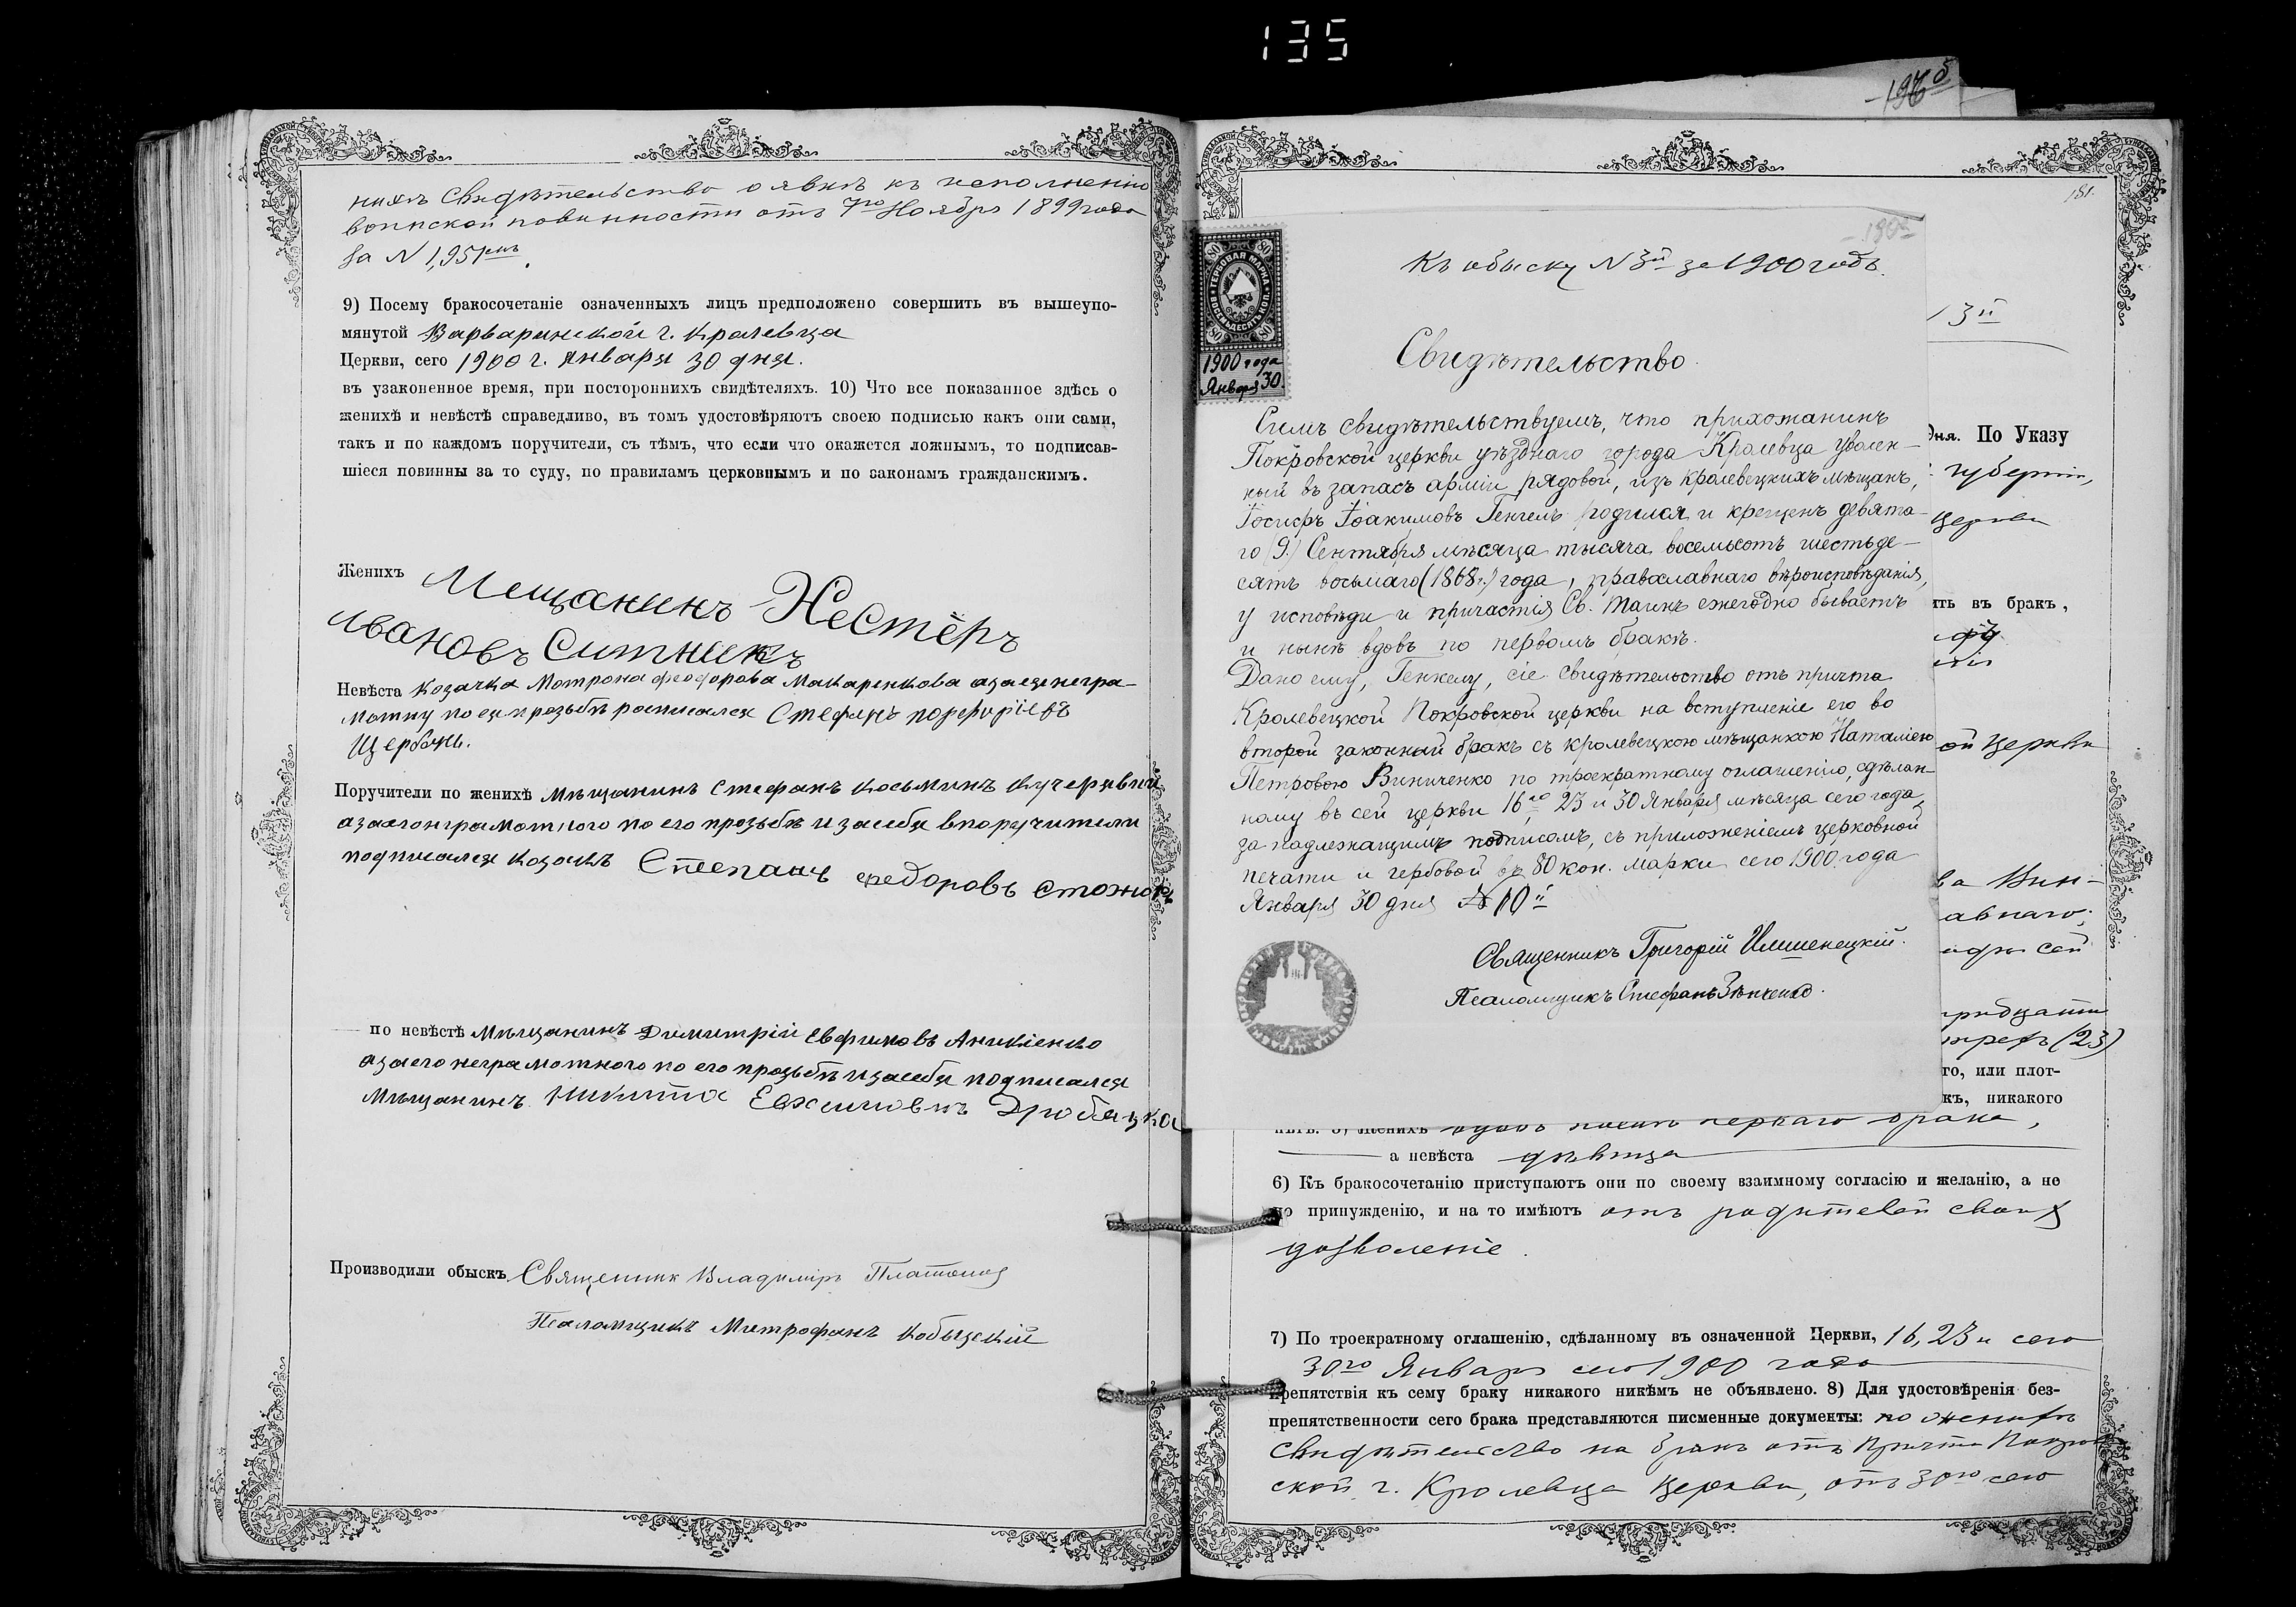 135
нихъ Свидѣтельство о явкѣ къ исполненію
воинской повинности отъ 7го Ноября 1899 года
за N 1,951мъ.
9) Посему бракосочетаніе означенныхъ лицъ предположено совершить въ вышеупо-
мянутой Варваринской г. Кролевца
Церкви, сего 1900 г. Января 30 дня.
въ узаконенное время, при постороннихъ свидѣтеляхъ. 10) Что все показанное здѣсь о
женихѣ и невѣстѣ справедливо, въ томъ удостовѣряютъ своею подписью какъ они сами,
такъ и по каждомъ поручители, съ тѣмъ, что если что окажется ложнымъ, то подписав-
шіеся повинны за то суду, по правиламъ церковнымъ и по законамъ гражданскимъ.
Женихъ Мещанинъ Нестёръ
Ивановъ Ситникъ
Невѣста Козачка Мотрона Феодорова Макаренкова а за ея негра-
мотну по ея прозьбѣ росписался Стефанъ порфиріевъ
Щербань.
Поручители по женихѣ Мѣщанинъ Стефанъ Косьминъ Кучерявий
а за его неграмотного по его прозьбѣ и за себя в поручители
подписался козакъ Степанъ федоровъ Стожокъ
по невѣстѣ Мѣщанинъ Димитрій Евфимовъ Аникіенко
а за его неграмотного по его прозьбѣ и за себя подписался
Мѣщанинъ Никита
Производили обыскъ Священникъ Владимiръ
Псаломщикъ Митрофанъ Кобыцскій
181.
Къ обыску N 3й за 1900 годъ.
ГЕРБОВАЯ МАРКА
ВОСЕМЬДЕСЯТЬ КОП.
80 80
80 80
1900 года
Января 30.
Свидѣтельство.
Симъ свидѣтельствуемъ, что прихожанинъ
Покровской церкви уѣзднаго города Кролевца уволен-
ный въ запасъ арміи рядовой, изъ кролевецкихъ мѣщанъ,
Іосифъ Іоакимовъ Генкель родился и крещенъ девята-
го (9.) Сентября мѣсяца тысяча восемьсотъ шестьде-
сятъ восьмаго (1868 г.) года, православнаго вѣроисповѣданія,
у исповѣди и причастія Св. Таинъ ежегодно бываетъ
и нынѣ вдовъ по первомъ бракѣ.
Дано ему, Генкелу, сіе свидѣтельство отъ причта
Кролевецкой Покровской церкви на вступленіе его во
второй законный бракъ съ кролевецкою мѣщанкою Наталіею
Петровою Виниченко по троекратному оглашенію, сдѣлан-
ному въ сей церкви 16го, 23 и 30 Января мѣсяца сего года,
за надлежащимъ подписомъ, съ приложеніемъ церковной
печати и гербовой въ 80 коп. марки сего 1900 года
Января 30 дня № 10й
Священникъ Григорій
Псаломщикъ Стефанъ Зѣнченко.
13й
дня. По Указу
губерніи,
Церкви
ить въ бракъ,
ой Церкви
ва Вин-
авнаго;
сей
тридцати
трехъ (23)
го, или плот-
къ, никакого
Женихъ вдовъ послѣ перваго брака,
а невѣста дѣвица
6) Къ бракосочетанію приступаютъ они по своему взаимному согласію и желанію, а не
по принужденію, и на то имѣютъ отъ родителей своихъ
дозволеніе.
7) По троекратному оглашенію, сдѣланному въ означенной Церкви, 16, 23 и сего
30го Января сего 1900 года
препятствія къ сему браку никакого никѣмъ не объявлено. 8) Для удостовѣренія без-
препятственности сего брака представляются писменные документы: по женихѣ
свидѣтельство на бракъ отъ Причта Покров
ской г. Кролевца Церкви, отъ 30го сего